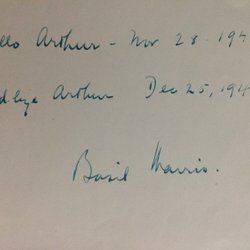 llo Arthur - Nov 28 - 194
dbye Arthur Dec 25, 194
Basil Harris.